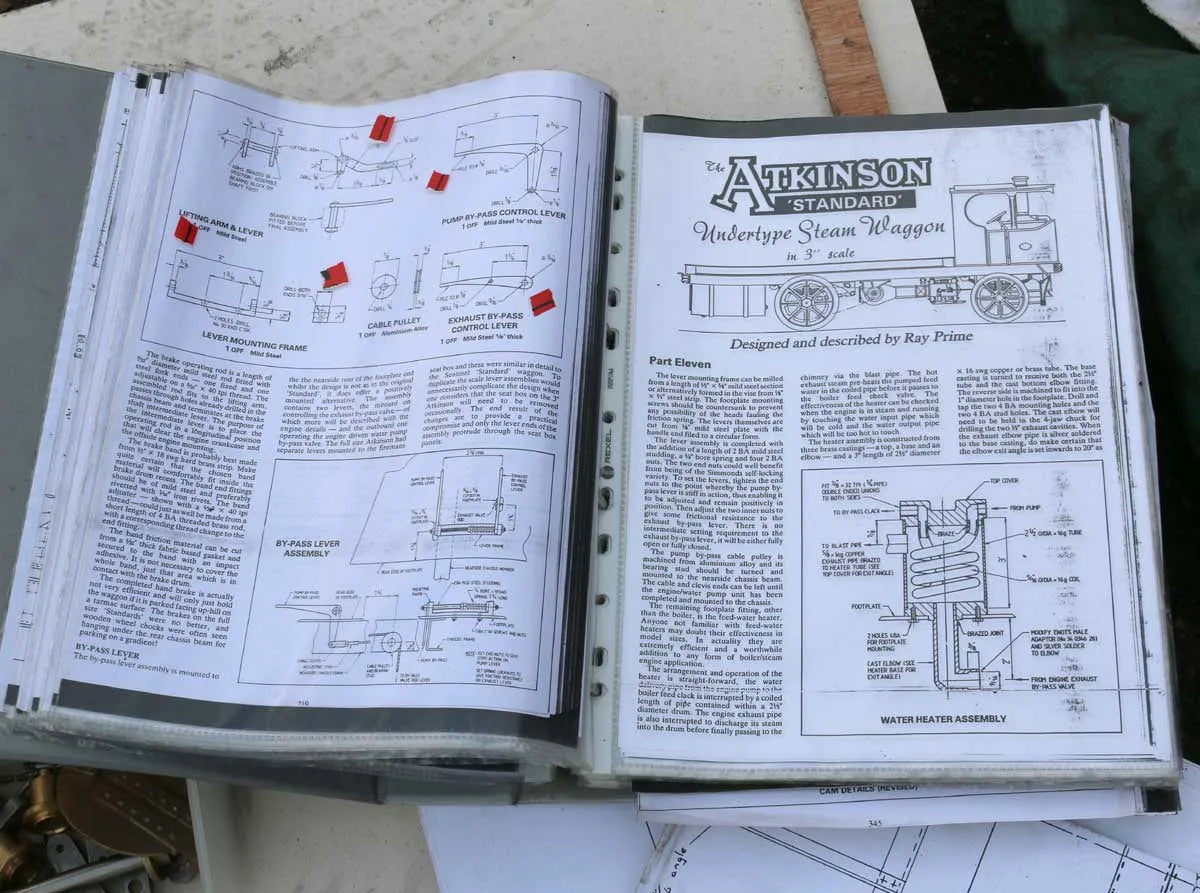 LIFTING ARM
ARMS BRAZED IN
POSITION ASSEMBLE
BEARING BLOCK ON
SHAFT FIRST
BEARING BLOCK
FITTED BEFORE
FINAL ASSEMBLY
LIFTING ARM & LEVER
OFF Mild Steel
PUMP BY-PASS CONTROL LEVER
1 OFF Mild Steel ⅛" thick
DRILL BOTH
2 HOLES DRILL
LEVER MOUNTING FRAME
1 OFF Mild Steel
CABLE PULLEY
1 OFF Aluminium Alloy
EXHAUST BY-PASS
CONTROL LEVER
1 OFF Mild Steel ⅛" thick
The brake operating rod is a length of
diameter mild steel rod fitted with
steel fork ends — one fixed and one
adjustable on a 5/32" × 40 tpi thread. The
assembled rod fits to the lifting arm,
passes through holes already drilled in the
chassis beam and terminates at the brake
shaft intermediate lever. The purpose of
the intermediate lever is to place the
operating rod in a longitudinal position
that will clear the engine crankcase and
the offside engine mounting.
The brake band is probably best made
from ½" × 18 swg hard brass strip. Make
quite certain that the chosen band
material will comfortably fit inside the
brake drum recess. The band end fittings
should be of mild steel and preferably
rivetted with 1/16" iron rivets. The band
adjuster — shown with a 5/32" × 40 tpi
thread — could just as well be made from a
short length of 4 BA threaded brass rod,
with a corresponding thread change to the
end fitting.
The band friction material can be cut
from a ⅛" thick fabric based gasket and
secured to the band with an impact
adhesive. It is not necessary to cover the
whole band, just that area which is in
contact with the brake drum.
The completed hand brake is actually
not very efficient and will only just hold
the waggon if it is parked facing up-hill on
a tarmac surface. The brakes on the full
size 'Standards' were no better, and
wooden wheel chocks were often seen
hanging under the rear chassis beam for
parking on a gradient!
BY-PASS LEVER
The by-pass lever assembly is mounted to
the the nearside rear of the footplate and
whilst the design is not as in the original
'Standard', it does offer a positively
mounted alternative. The assembly
contains two levers, the inboard on
controlling the exhaust by-pass valve — of
which more will be described with the
engine details — and the outboard one
operating the engine driven water pump
by-pass valve. The full size Atkinson had
separate levers mounted to the firemans
seat box and these were similar in detail to
the Sentinel 'Standard' waggon. To
duplicate the scale lever assemblies would
unnecessarily complicate the design when
one considers that the seat box on the 3"
Atkinson will need to be removed
occasionally. The end result of the
changes are to provide a practical
compromise and only the lever ends of the
assembly protrude through the seat box
panels.
BY-PASS LEVER
ASSEMBLY
PUMP BY-PASS
CONTROL LEVER
EXHAUST
BY-PASS
CONTROL
LEVER
LEVER FRAME
NEARSIDE CHASSIS MEMBER
FOOTPLATE
NOTE
SET END NUTS TO GIVE
STIFF ACTION ON
PUMP LEVER
SET SPRING
GIVE FRICTION RESISTANCE
ON EXHAUST LEVER
CABLE PULLEY
AND BEARING
STUD
719
REXEL
The
ATKINSON
'STANDARD'
Undertype Steam Waggon
in 3" scale
Designed and described by Ray Prime
Part Eleven
The lever mounting frame can be milled
from a length of ½" × ¼" mild steel section
or alternatively formed in the vise from ⅛"
× ½" steel strip. The footplate mounting
screws should be countersunk to prevent
any possibility of the heads fouling the
friction spring. The levers themselves are
cut from ⅛" mild steel plate with the
handle end filed to a circular form.
The lever assembly is completed with
the addition of a length of 2 BA mild steel
studding, a ¼" bore spring and four 2 BA
nuts. The two end nuts could well benefit
from being of the Simmonds self-locking
variety. To set the levers, tighten the end
nuts to the point whereby the pump by-
pass lever is stiff in action, thus enabling it
to be adjusted and remain positively in
position. Then adjust the two inner nuts to
give some frictional resistance to the
exhaust by-pass lever. There is no
intermediate setting requirement to the
exhaust by-pass lever, it will be either fully
open or fully closed.
The pump by-pass cable pulley is
machined from aluminium alloy and its
bearing stud should be turned and
mounted to the nearside chassis beam.
The cable and clevis ends can be left until
the engine/water pump unit has been
completed and mounted to the chassis.
The remaining footplate fitting, other
than the boiler, is the feed-water heater.
Anyone not familiar with feed-water
heaters may doubt their effectiveness in
model sizes. In actuality they are
extremely efficient and a worthwhile
addition to any form of boiler/steam
engine application.
The arrangement and operation of the
heater is straight-forward, the water
delivery pipe from the engine pump to the
boiler feed clack is interrupted by a coiled
length of pipe contained within a 2½"
diameter drum. The engine exhaust pipe
is also interrupted to discharge its steam
into the drum before finally passing to the
chimney via the blast pipe. The hot
exhaust steam pre-heats the pumped feed
water in the coiled pipe before it passes to
the boiler feed check valve. The
effectiveness of the heater can be checked
when the engine is in steam and running
by touching the water input pipe which
will be cold and the water output pipe
which will be too hot to touch.
The heater assembly is constructed from
three brass castings — a top, a base and an
elbow — and a 3" length of 2½" diameter
× 16 swg copper or brass tube. The base
casting is turned to receive both the 2½"
tube and the cast bottom elbow fitting.
The reverse side is machined to fit into the
1" diameter hole in the footplate. Drill and
tap the two 4 BA mounting holes and the
two 4 BA stud holes. The cast elbow will
need to be held in the 4-jaw chuck for
drilling the two ½" exhaust cavities. When
the exhaust elbow pipe is silver soldered
to the base casting, do make certain that
the elbow exit angle is set inwards to 20° as
FIT ⅜ × 32 TPI (¼ PIPE)
DOUBLE ENDED UNIONS
TO BOTH SIDES
TOP COVER
TO BY-PASS CLACK
FROM PUMP
BRAZE
2½ O/DIA × 16g TUBE
TO BLAST PIPE
⅝ × 16g COPPER
EXHAUST PIPE BRAZED
TO HEATER TUBE (SEE
TOP COVER FOR EXIT ANGLE)
5/16 O/DIA × 16g COIL
FOOTPLATE
2 HOLES 4BA
FOR FOOTPLATE
MOUNTING
BRAZED JOINT
MODIFY ENOTS MALE
ADAPTOR
AND SILVER SOLDER
TO ELBOW
CAST ELBOW (SEE
HEATER BASE FOR
EXIT ANGLE)
FROM ENGINE EXHAUST
BY-PASS VALVE
WATER HEATER ASSEMBLY
CAM DETAILS (REVISED)
345
angle